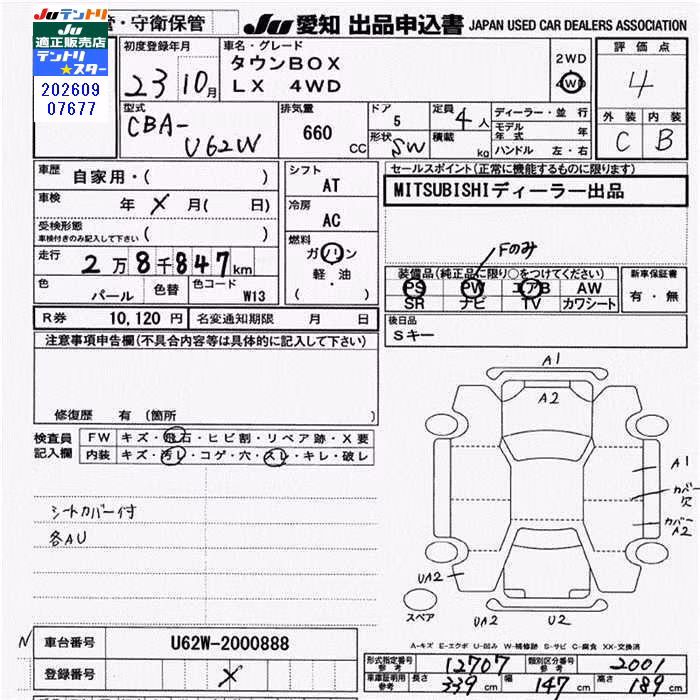 JUテントリ
JU
適正販売店
テントリ
★スター
202609
07677
管・守衛保管
JU 愛知 出品申込書 JAPAN USED CAR DEALERS ASSOCIATION
初度登録年月
23 10月
車名・グレード
タウンBOX
LX 4WD
2WD
4WD
評価点
4
外装 内装
C B
型式
CBA-
U62W
排気量
660 CC
ドア
5
形状 SW
定員 4 人
積載 kg
ディーラー・並行
モデル年式 年
ハンドル 左・右
車歴
自家用・( )
車検 年 X 月( 日)
受検形態
車検付きのみ記入して下さい ( )
走行 2万8千847km
色 パール
色替
色コード W13
シフト
AT
冷房
AC
燃料
ガソリン
軽・油
( )
セールスポイント(正常に機能するものに限ります)
MITSUBISHIディーラー出品
Fのみ
装備品(純正品に限り○をつけてください)
PS PW エアB AW
SR ナビ TV カワシート
新車保証書
有・無
R券 10,120円 名変通知期限 月 日
後日品
Sキー
注意事項申告欄(不具合内容等は具体的に記入して下さい)
修復歴 有(箇所 )
検査員
記入欄
FW キズ・飛石・ヒビ割・リペア跡・X要
内装 キズ・汚レ・コゲ・穴・スレ・キレ・破レ
シートカバー付
各AU
A1
A2
A1
カバー
欠
カバー
A2
UA2
UA2
U2
スペア
A-キズ E-エクボ U-凹み W-補修跡 S-サビ C-腐食 XX-交換済
N
車台番号 U62W-2000888
登録番号 X
形式指定番号
参考 12707
類別区分番号
参考 2001
車庫証明用
参考 長さ 339 cm 幅 147 cm 高さ 189 cm